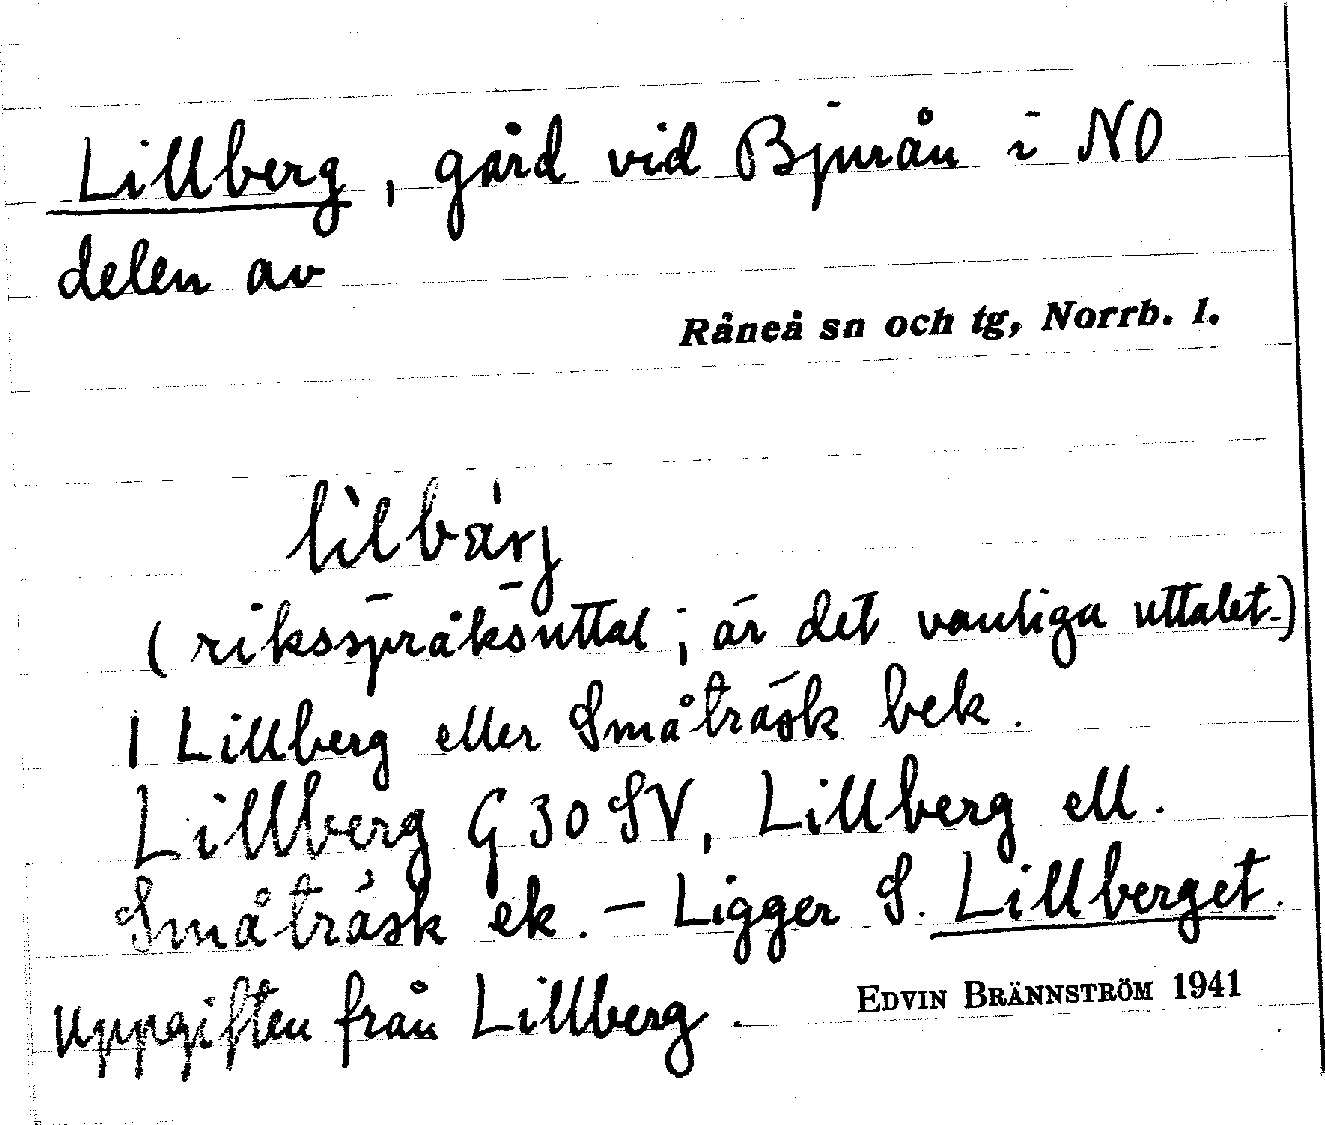 Lillberg, gård vid Bjurån i NO
delen av
Råneå sn och tg, Norrb. l.
lìlbárj
(riksspråksuttal; är det vanliga uttalet.)
I Lillberg eller Småträsk bek.
Lillberg G 30 SV, Lillberg ell.
Småträsk ek. – Ligger S. Lillberget.
Uppgiften från Lillberg.
EDVIN BRÄNNSTRÖM 1941